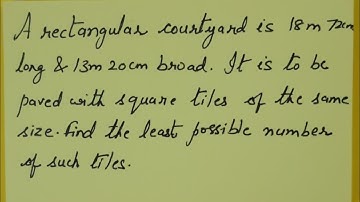 A rectangular courtyard is 18m 72cm
long & 13m 20cm broad. It is to be
paved with square tiles of the same
size. find the least possible number
of such tiles.